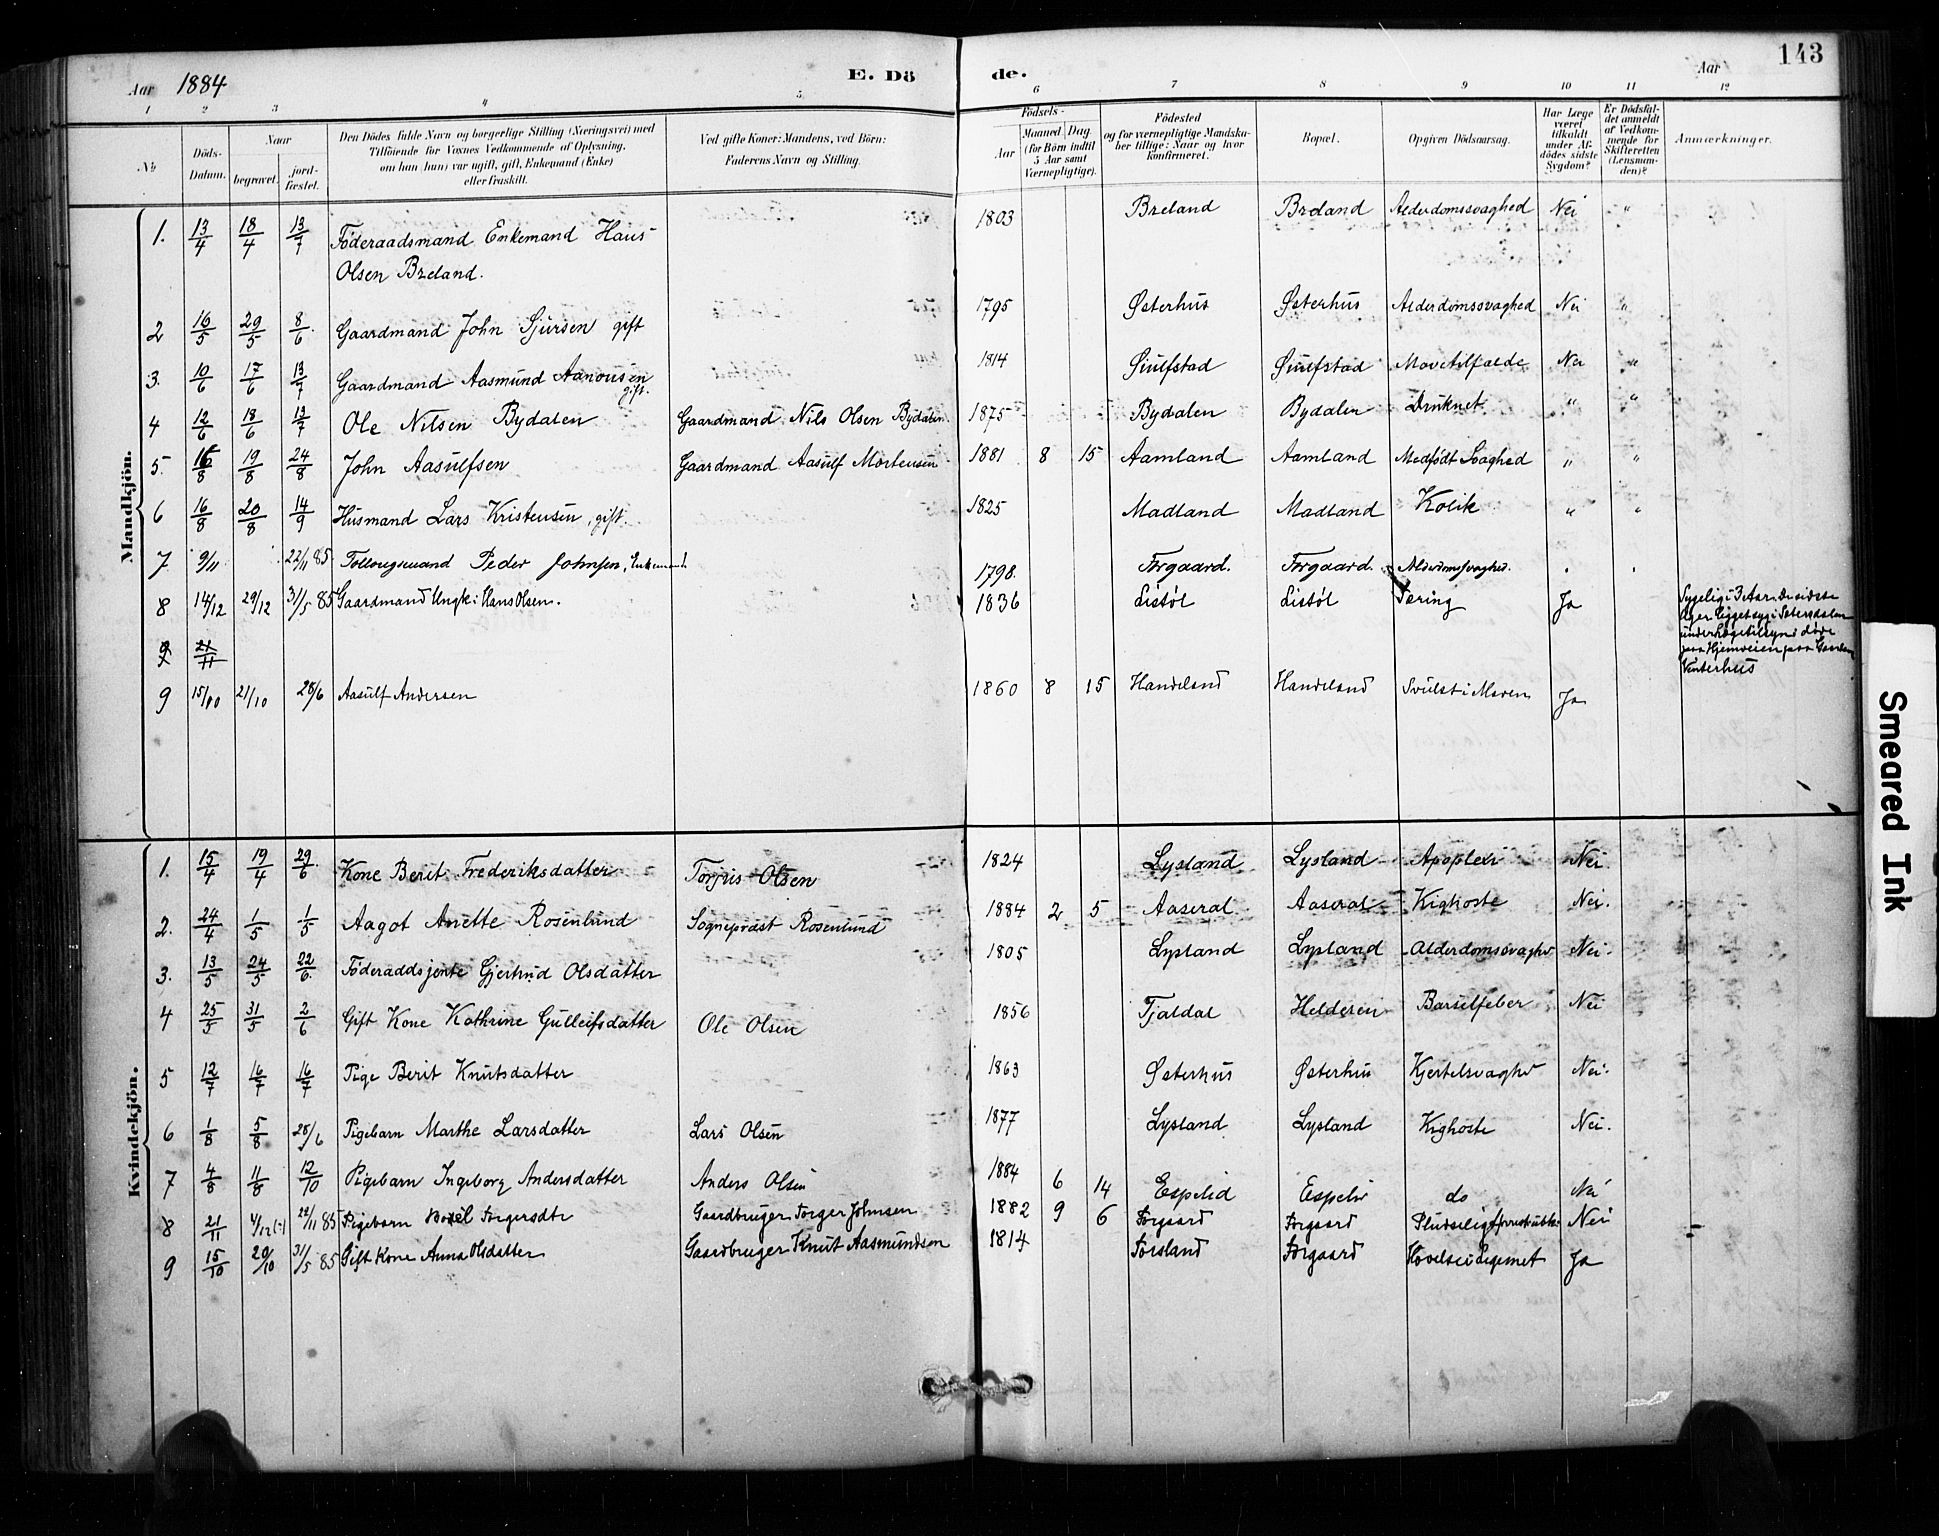 Aar 1884 E. Dö de. Aar 143
1 2 3 4 5 6 7 8 9 10 11 12
No
Döds-Datum.
Naar
begravet.
jordfæstet.
Den Dödes fulde Navn og borgerlige Stilling (Næringsvei) med
Tilföiende for Voxnes Vedkommende af Oplysning,
om han (hun) var ugift, gift, Enkemand (Enke)
eller fraskilt.
Ved gifte Koner: Mandens, ved Börn:
Faderens Navn og Stilling.
Födsels-
Aar
Maaned Dag
(for Börn indtil
5 Aar samt
Værnepligtige).
Födested
og for værnepligtige Mandska-
ber tillige: Naar og hvor
konfirmeret.
Bopæl.
Opgiven Dödsaarsag.
Har Læge
været
tilkaldt
under Af-
dödes sidste
Sygdom?
Er Dödsfal-
det anmeldt
af Vedkom-
mende for
Skifteretten
(Lensman-
den)?
Anmærkninger.
Mandkjön.
1. 13/4 18/4 13/7 Föderaadsmand Enkemand Hans 1803 Breland Breland Alderdomssvaghed Nei "
Olsen Breland.
2 16/5 29/5 8/6 Gaardmand John Sjursen gift 1795 Østerhus Østerhus Alderdomssvaghed Nei "
3. 10/6 17/6 13/7 Gaardmand Aasmund Aanonsen gift. 1814 Siulfstad Siulfstad Mavetilfælde Nei "
4 12/6 18/6 13/7 Ole Nilsen Bydalen Gaardmand Nils Olsen Bydalen 1875 Bydalen Bydalen Druknet " "
5. 16/8 19/8 24/8 John Aasulfsen Gaardmand Aasulf Mortensen 1881 8 15 Aamland Aamland Medfödt Svaghed " "
6 16/8 20/8 14/9 Husmand Lars Kristensen, gift. 1825 Madland Madland Kolik " "
7 9/11 22/11 85 Peder Johnsen, Enkemand 1798. Forgaard. Forgaard. Alderdomssvaghed.
8 14/12 29/12 31/5 85 Gaardmand Ungk: Hans Olsen. 1836 Listøl Listøl Tæring Ja Sygelig i 3 Aar. De sidste
Uger ligget syg i Sætersdalen
under Lægetilsyn; døde
paa Hjemveien paa Gaarden
Vinterhus
21/11
9 15/10 21/10 28/6 Aasulf Andersen 1860 8 15 Handeland Handeland Svulst i Maven Ja
Kvindekjön.
1. 15/4 19/4 29/6 Kone Berit Frederiksdatter Torjus Olsen 1824 Lysland Lysland Apoplexi Nei
2. 24/4 1/5 1/5 Aagot Anette Rosenlund Sogneprest Rosenlund 1884 2 5 Aaseral Aaseral Kighoste Nei.
3. 13/5 24/5 22/6 Föderaadsjente Gjertrud Olsdatter 1805 Lysland Lysland Alderdomssvaghd Nei.
4 25/5 31/5 2/6 Gift Kone Kathrine Gulleifsdatter Ole Olsen 1856 Tjaldal Helderen Barselfeber Nei
5 12/7 16/7 16/7 Pige Berit Knutsdatter 1863 Østerhus Østerhus Kjertelsvaghd Nei.
6 1/8 5/8 28/6 Pigebarn Marthe Larsdatter Lars Olsen 1877 Lysland Lysland Kighoste Nei.
7 4/8 11/8 12/10 Pigebarn Ingeborg Andersdatter Anders Olsen 1884 6 14 Espelid Espelid do Nei
8 21/11 4/12 22/11 85 Pigebarn Torgersdtr Gaardbruger Torger Johnsen 1882 9 6 Forgaard Forgaard Pludselig Nei
9 15/10 20/10 31/5 85 Gift Kone Anna Olsdatter Gaardbruger Knut Aasmundsen 1814 Forsland Forgaard Hovelse i Legemet Ja
Smeared Ink